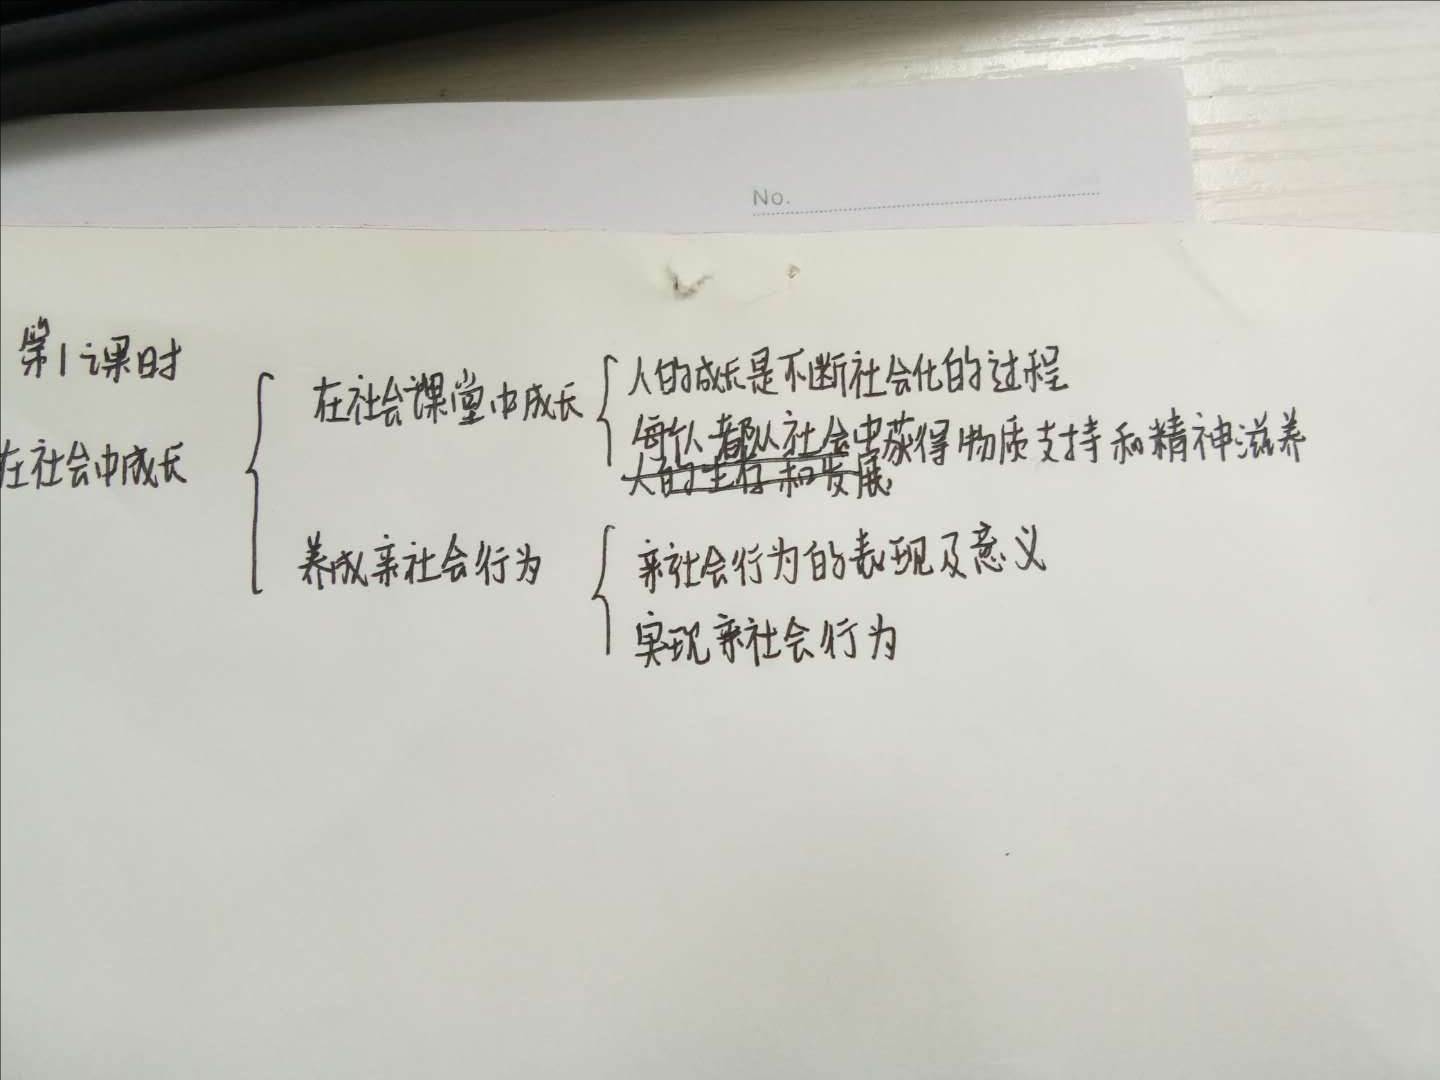 No.
第1课时
在社会中成长
在社会课堂中成长
人的成长是不断社会化的过程
每个人都从社会中获得物质支持和精神滋养
人的生存和发展
养成亲社会行为
亲社会行为的表现及意义
实现亲社会行为